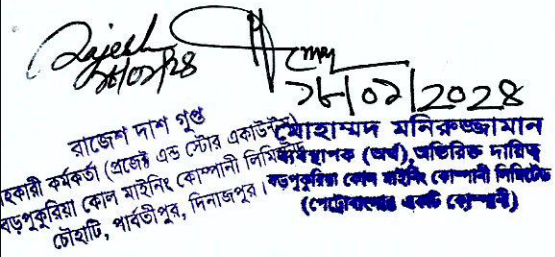 Rajesh
রাজেশ দাশ গুপ্ত
হকারী কর্মকর্তা (প্রজেক্ট এন্ড স্টোর একাউন্টস)
বড়পুকুরিয়া কোল মাইনিং কোম্পানী লিমিটেড
চৌহাটি, পার্বতীপুর, দিনাজপুর।
২০২৪
মোহাম্মদ মনিরুজ্জামান
ব্যবস্থাপক (অর্থ), অতিরিক্ত দায়িত্ব
বড়পুকুরিয়া কোল মাইনিং কোম্পানী লিমিটেড
(পেট্রোবাংলার একটি কোম্পানী)